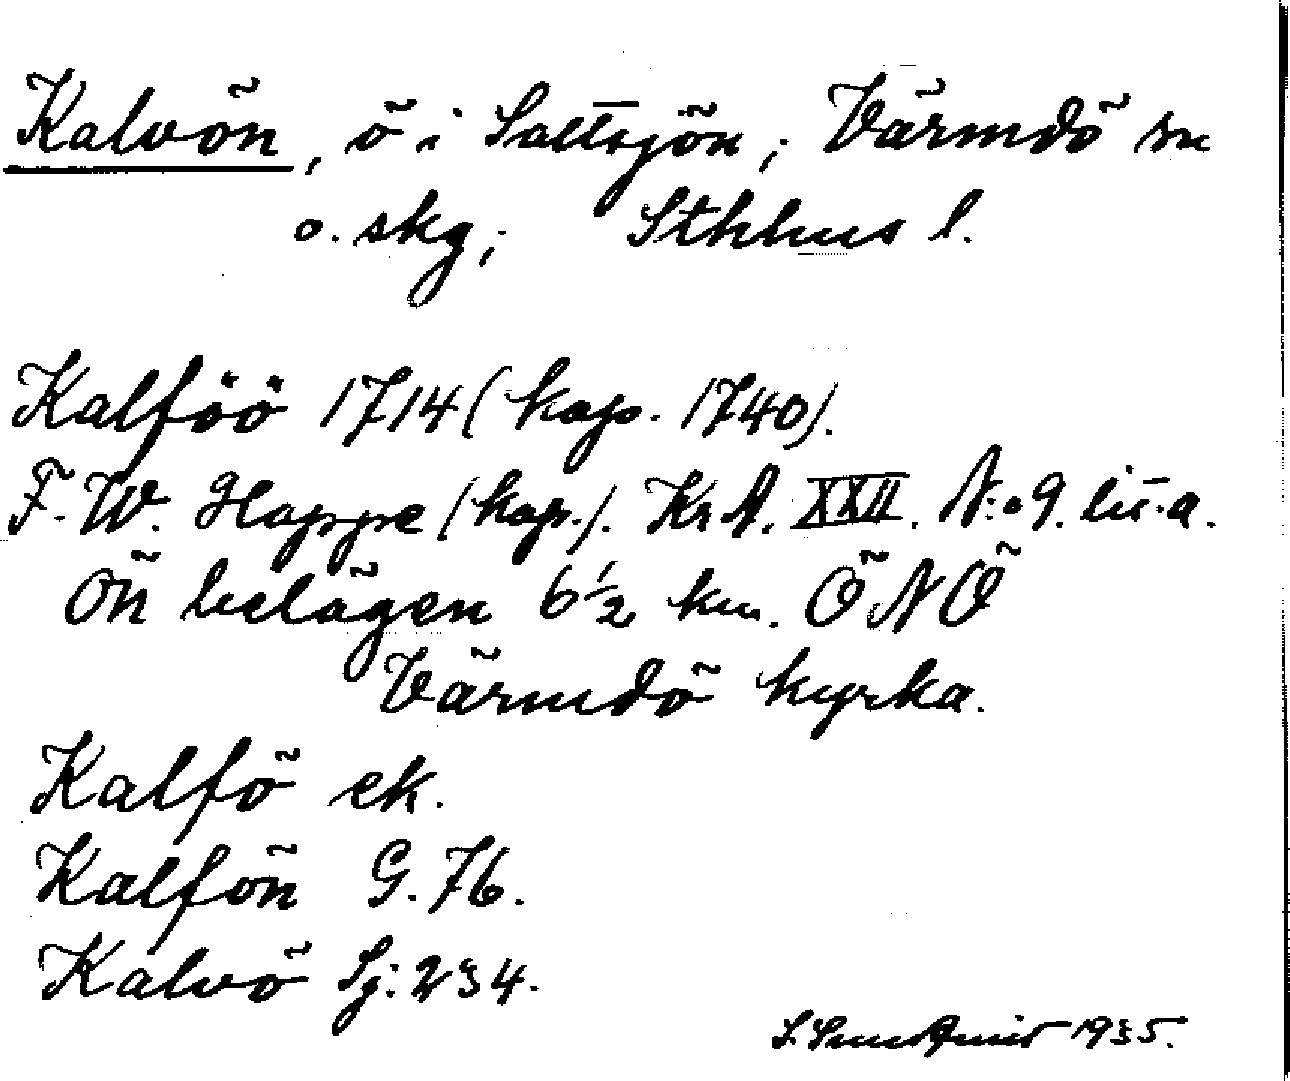 Kalvön, ö i Saltsjön; Värmdö sn
o. skg; Sthlms l.
Kalföö 1714 (kop. 1740).
F. W. Hoppe (kop.). Kr A. XXII. N:o 9. lit. a.
Ön belägen 6 1/2 km. ÖNÖ
Värmdö kyrka.
Kalfö ek.
Kalfön G. 76.
Kalvö Sj: 234.
S. Sundqvist 1935.